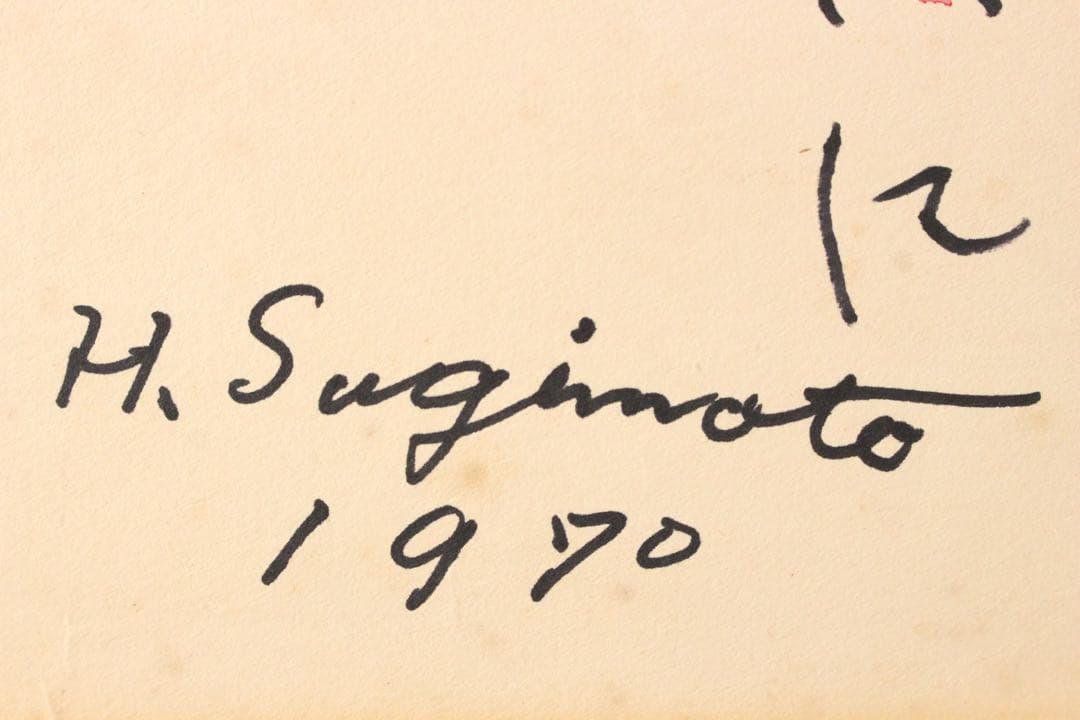 に
H. Sugimoto
1970